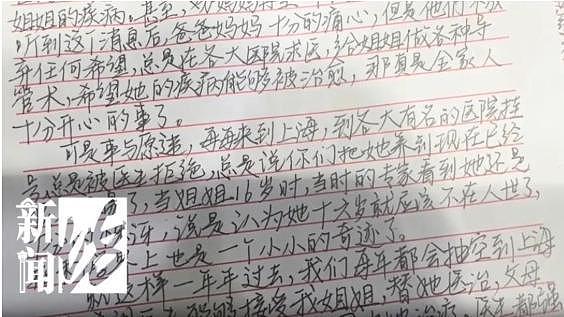 姐姐的疾病。甚至,
听到这个消息后,爸爸妈妈十分的痛心,但是他们不放
弃任何希望,总是在各大医院求医,给姐姐做各种导
管术,希望她的疾病能够被治愈,那真是全家人
十分开心的事了。
可是事与愿违,再再来到上海,到各大有名的医院挂
号总是被医生拒绝,总是说你们把她养到现在已经
了,当姐姐16岁时,当时的专家看到她还是
讶,说是认为她十六岁就应该不在人世了,
上也是一个小小的奇迹了。
就这样一年年过去,我们每年都会抽空到上海
能够接受我姐姐,替她医治,父母
治疗,医生都强
新闻